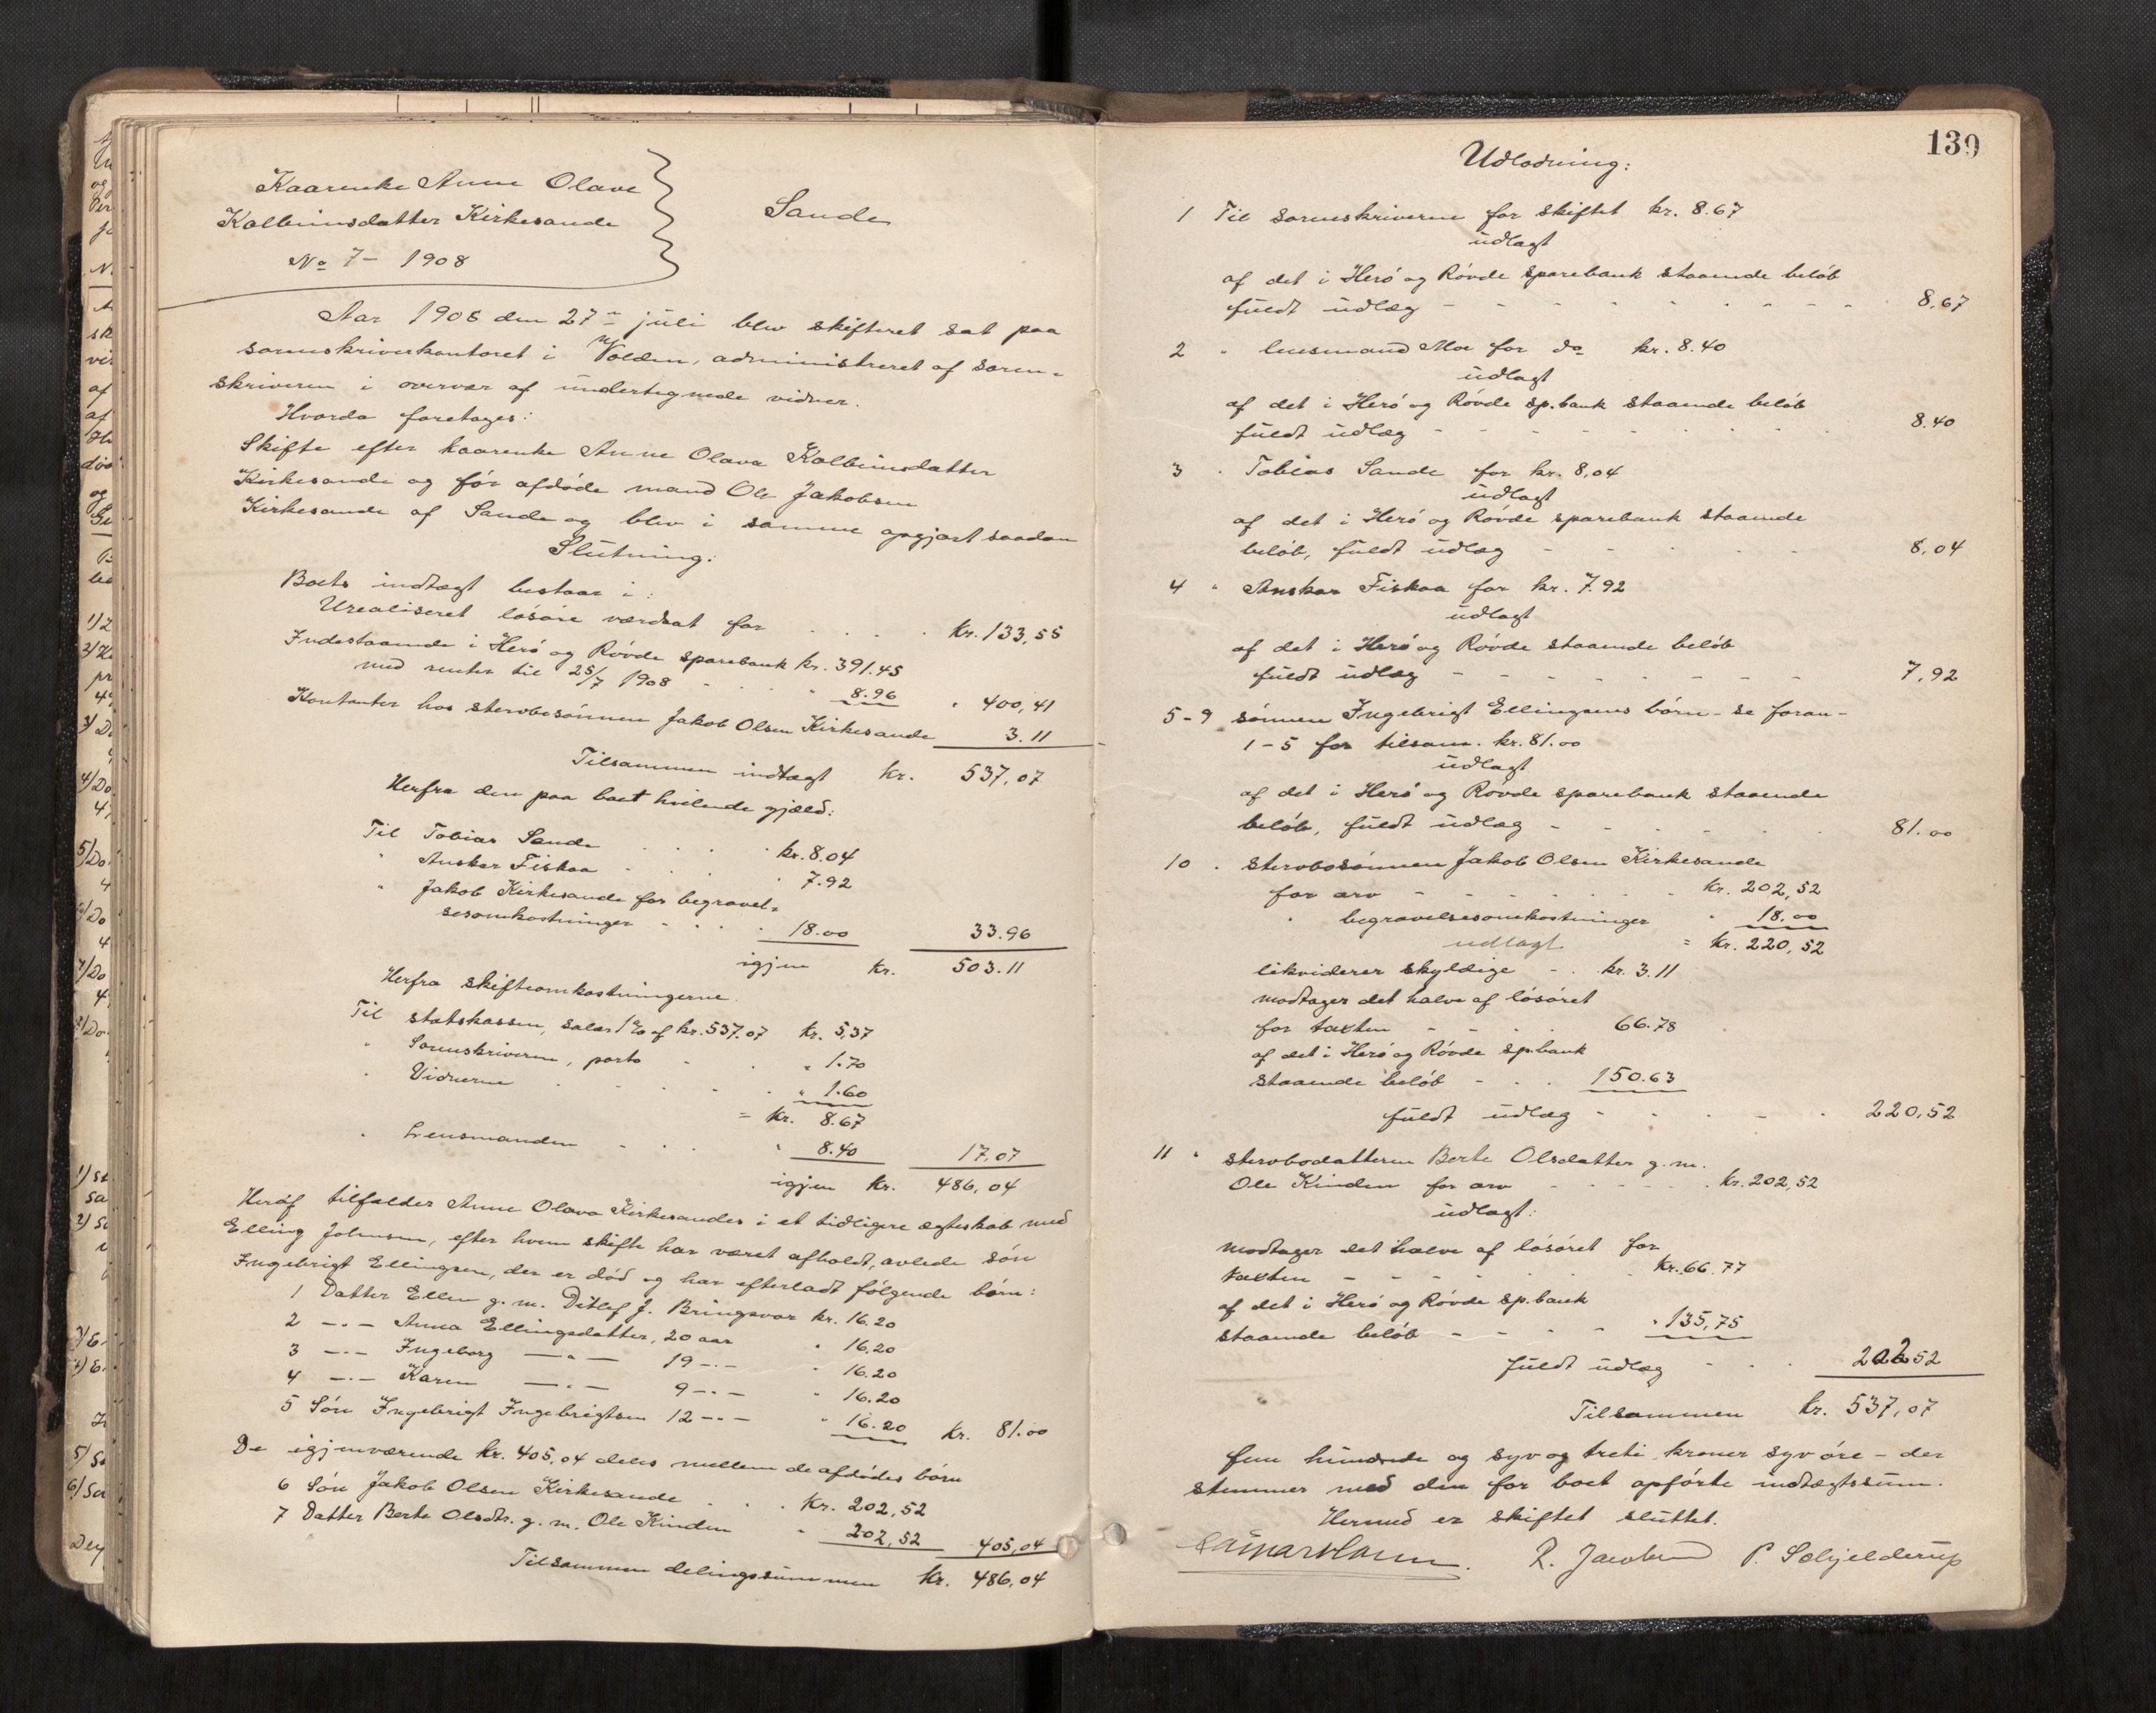 Kaarenke Anne Olave
Kolbeinsdatter Kirkesande
No 7 - 1908
Sande
Aar 1908 den 27de juli blev skifteret sat paa
sorenskriverkontoret i Volden, administreret af soren-
skriveren i overvær af undertegnede vidner.
Hvorda foretages:
Skifte efter kaarenke Anne Olava Kolbeinsdatter
Kirkesande og før afdøde mand Ole Jakobsen
Kirkesande af Sande og blev i samme opgjort saadan
Slutning:
Boets indtægt bestaar i:
Urealiseret løsøre værdsat for . . . . kr. 133,55
Indestaaende i Herø og Røvde sparebank kr. 391.45
med renter til 25/7 1908 - . . " 8.96 " 400,41
Kontanter hos sterbosønnen Jakob Olsen Kirkesande 3.11
Tilsammen indtægt kr. 537,07
Herfra den paa boet hvilende gjæld:
Til Tobias Sande . . . . kr. 8.04
" Ansker Fiskaa - . . . " 7.92
" Jakob Kirkesande for begravel-
sesomkostninger - . . . 18.00 33.96
igjen kr. 503.11
Herfra skifteomkostningerne.
Til statskassen, salær 1% af kr. 537.07 kr. 5,37
" Sorenskriveren, porto - . " 1.70
" Vidnerne . - . - . " 1.60
= kr. 8.67
" Lensmanden - . . " 8.40 17.07
igjen kr. 486,04
Heraf tilfalder Anne Olava Kirkesandes i et tidligere ægteskab med
Elling Johnsen, efter hvem skifte har været afholdt, avlede søn
Ingebrigt Ellingsen, der er død og har efterladt følgende børn:
1 Datter Ellen g. m. Ditlef J. Bringsvor kr. 16.20
2 -"- Anna Ellingsdatter, 20 aar " 16,20
3 -"- Ingeborg -"- 19 -"- " 16.20
4 -"- Karen -"- 9 -"- " 16.20
5 Søn Ingebrigt Ingebrigtsen 12 -"- " 16.20 kr. 81.00
De igjenværende kr. 405,04 deles mellem de afdødes børn
6 Søn Jakob Olsen Kirkesande . . . kr. 202,52
7 Datter Berte Olsdtr. g. m. Ole Kinden " 202,52 405,04
Tilsammen delingssummen kr. 486,04
139
Udlodning:
1 Til sorenskriveren for skiftet kr. 8.67
udlagt
af det i Herø og Røvde sparebank staaende beløb
fuldt udlæg - - - - 8,67
2 " lensmand Moe for do kr. 8.40
udlagt
af det i Herø og Røvde sp.bank staaende beløb
fuldt udlæg - - - - 8.40
3 " Tobias Sande for kr. 8,04
udlagt
af det i Herø og Røvde sparebank staaende
beløb, fuldt udlæg - - - 8,04
4 " Ansker Fiskaa for kr. 7.92
udlagt
af det i Herø og Røvde staaende beløb
fuldt udlæg - - - - 7,92
5-9 sønnen Ingebrigt Ellingsens børn - se foran -
1-5 for tilsam. kr. 81.00
udlagt
af det i Herø og Røvde sparebank staaende
beløb, fuldt udlæg - - - 81.00
10 " sterbosønnen Jakob Olsen Kirkesande
for arv - - - - kr. 202,52
" begravelsesomkostninger " 18.00
udlagt = kr. 220,52
likviderer skyldige - . kr. 3.11
modtager det halve af løsøret
for taxten - - . 66.78
af det i Herø og Røvde sp.bank
staaende beløb - . . 150.63
fuldt udlæg - - - 220,52
11 " sterbodatteren Berte Olsdatter g. m.
Ole Kinden for arv - - - kr. 202,52
udlagt:
modtager det halve af løsøret for
taxten - - - - kr. 66.77
af det i Herø og Røvde sp.bank
staaende beløb - - - " 135,75
fuldt udlæg - . . 202 52
Tilsammen kr. 537,07
fem hundrede og syv og treti kroner syv øre - der
stemmer med den for boet opførte indtægtssum.
Hermed er skiftet sluttet.
R. Jacobsen P. Schjelderup